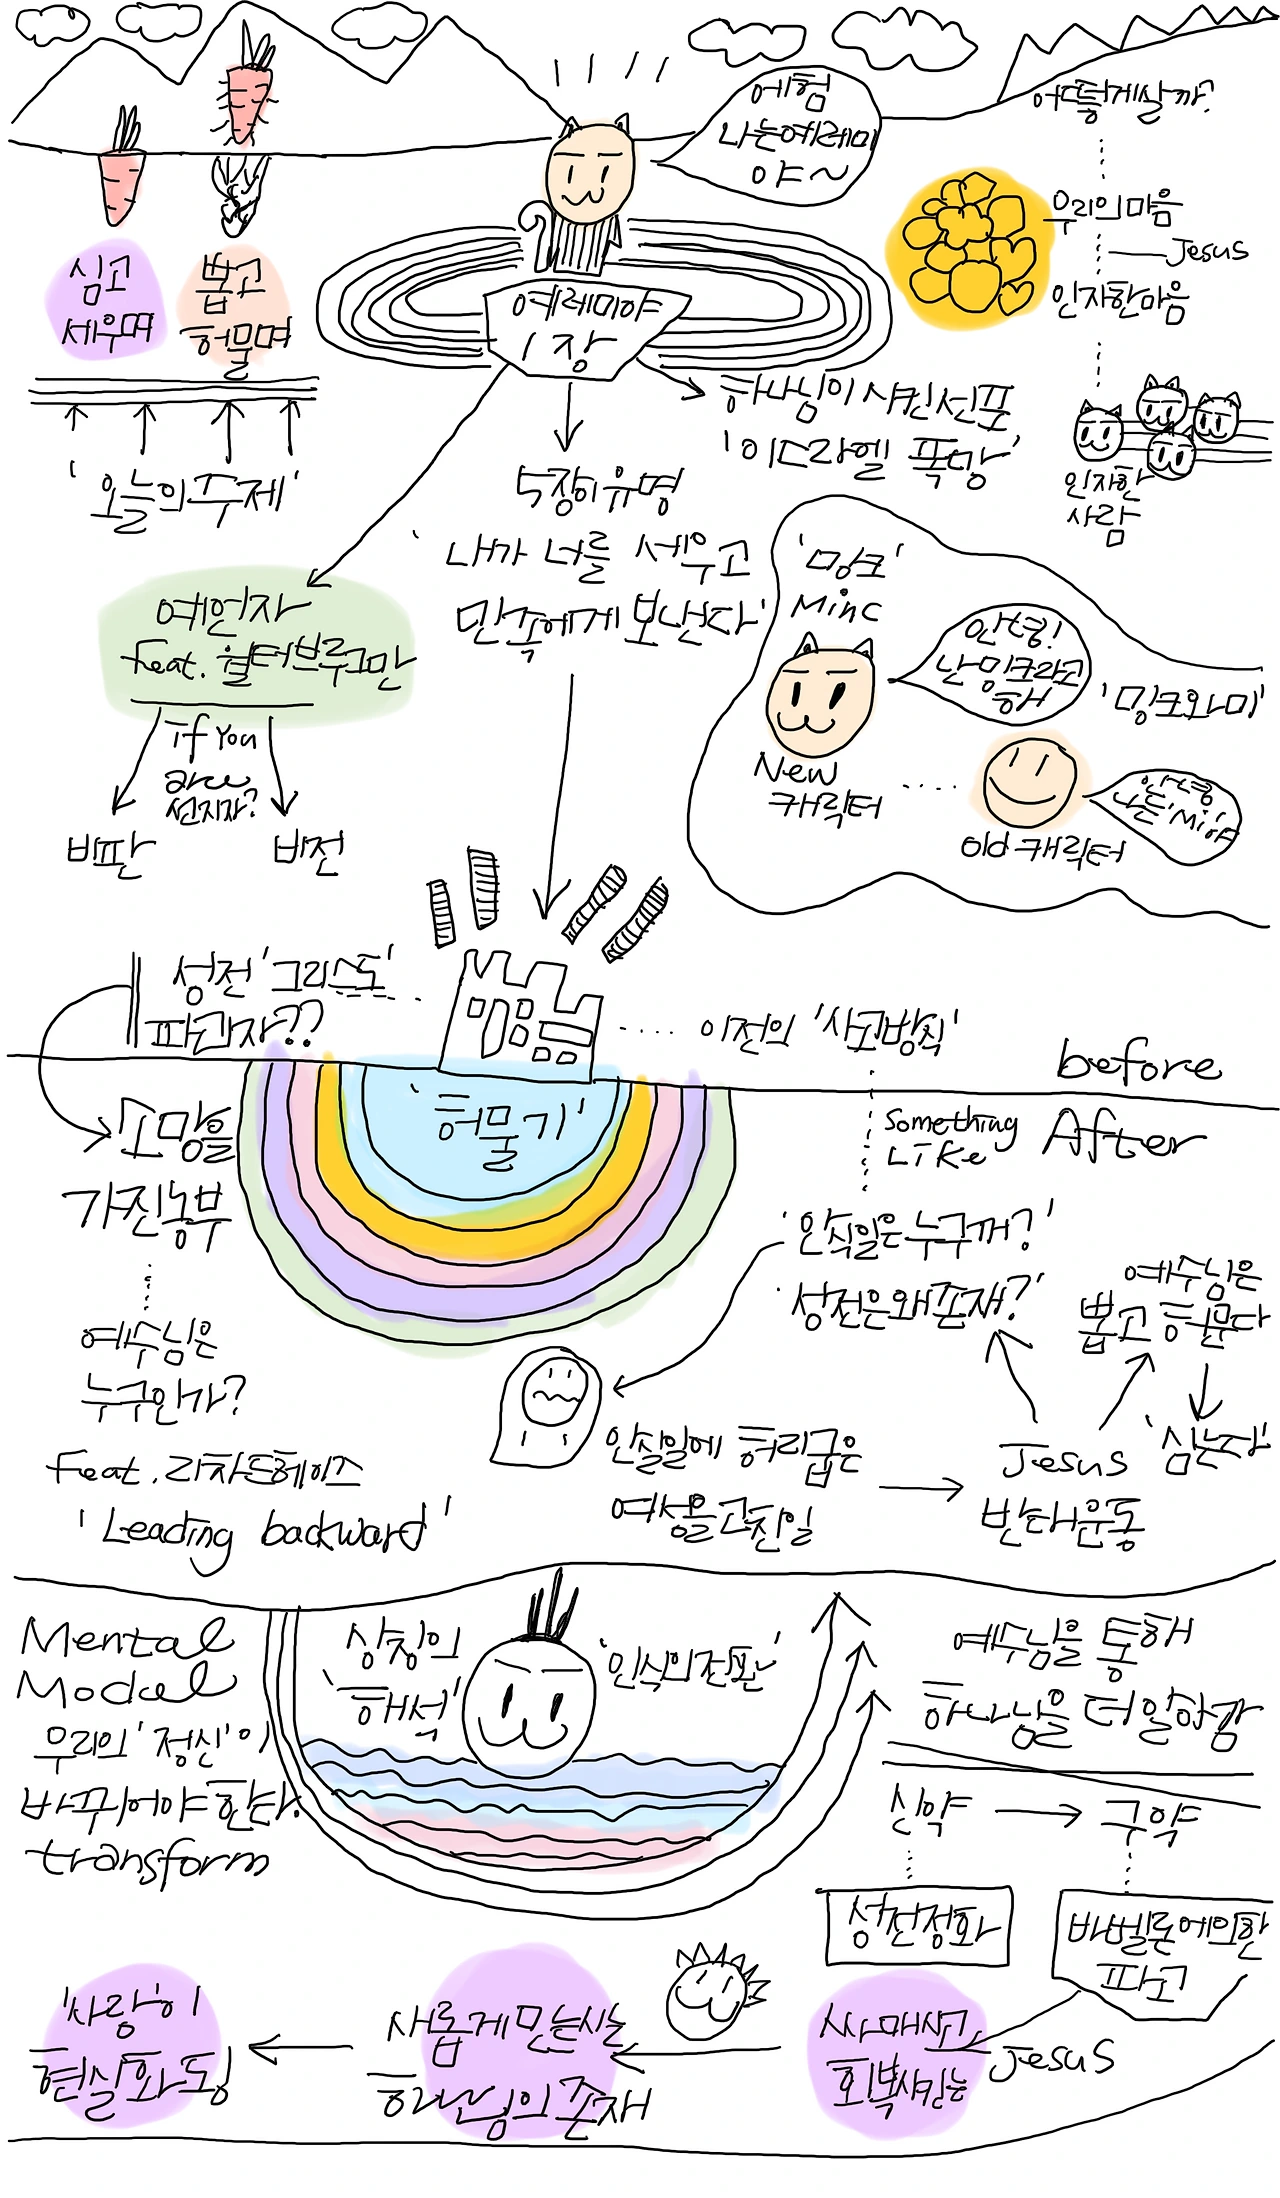 에험
나는예레미
야~
어떻게살까?
우리의마음
Jesus
인자한마음
인자한
사람
심고
세우며
뽑고
허물며
'오늘의주제'
예레미야
1장
하나님이 시킨선포
'이스라엘 폭망'
5장이유명
'내가 너를 세우고
민족에게 보낸다'
예언자
feat. 월터브루그만
if you
are
선지자?
비판
비전
'밍크'
Minc
안녕!
난밍크라고
해
'밍크와미'
New
캐릭터
old 캐릭터
안녕
나는'Mi'야
성전'그리스도'
파괴자??
이전의 '사고방식'
before
After
'허물기'
소망을
가진농부
something
Like
'안식일은누구꺼?'
'성전은왜존재?'
예수님은
뽑고 허문다
'심는다'
예수님은
누구인가?
feat. 리차드헤이스
'Leading backward'
안실일에 허리굽은
여성을고친일
Jesus
반대운동
Mental
Model
우리의 '정신'이
바뀌어야한다.
transform
상징의
'해석'
'인식의전환'
예수님을 통해
하나님을 더알아감
신약
구약
성전정화
바벨론에의한
파고
싸매시고
회복시키는
Jesus
새롭게만드시는
하나님의존재
'사랑'이
현실화됨